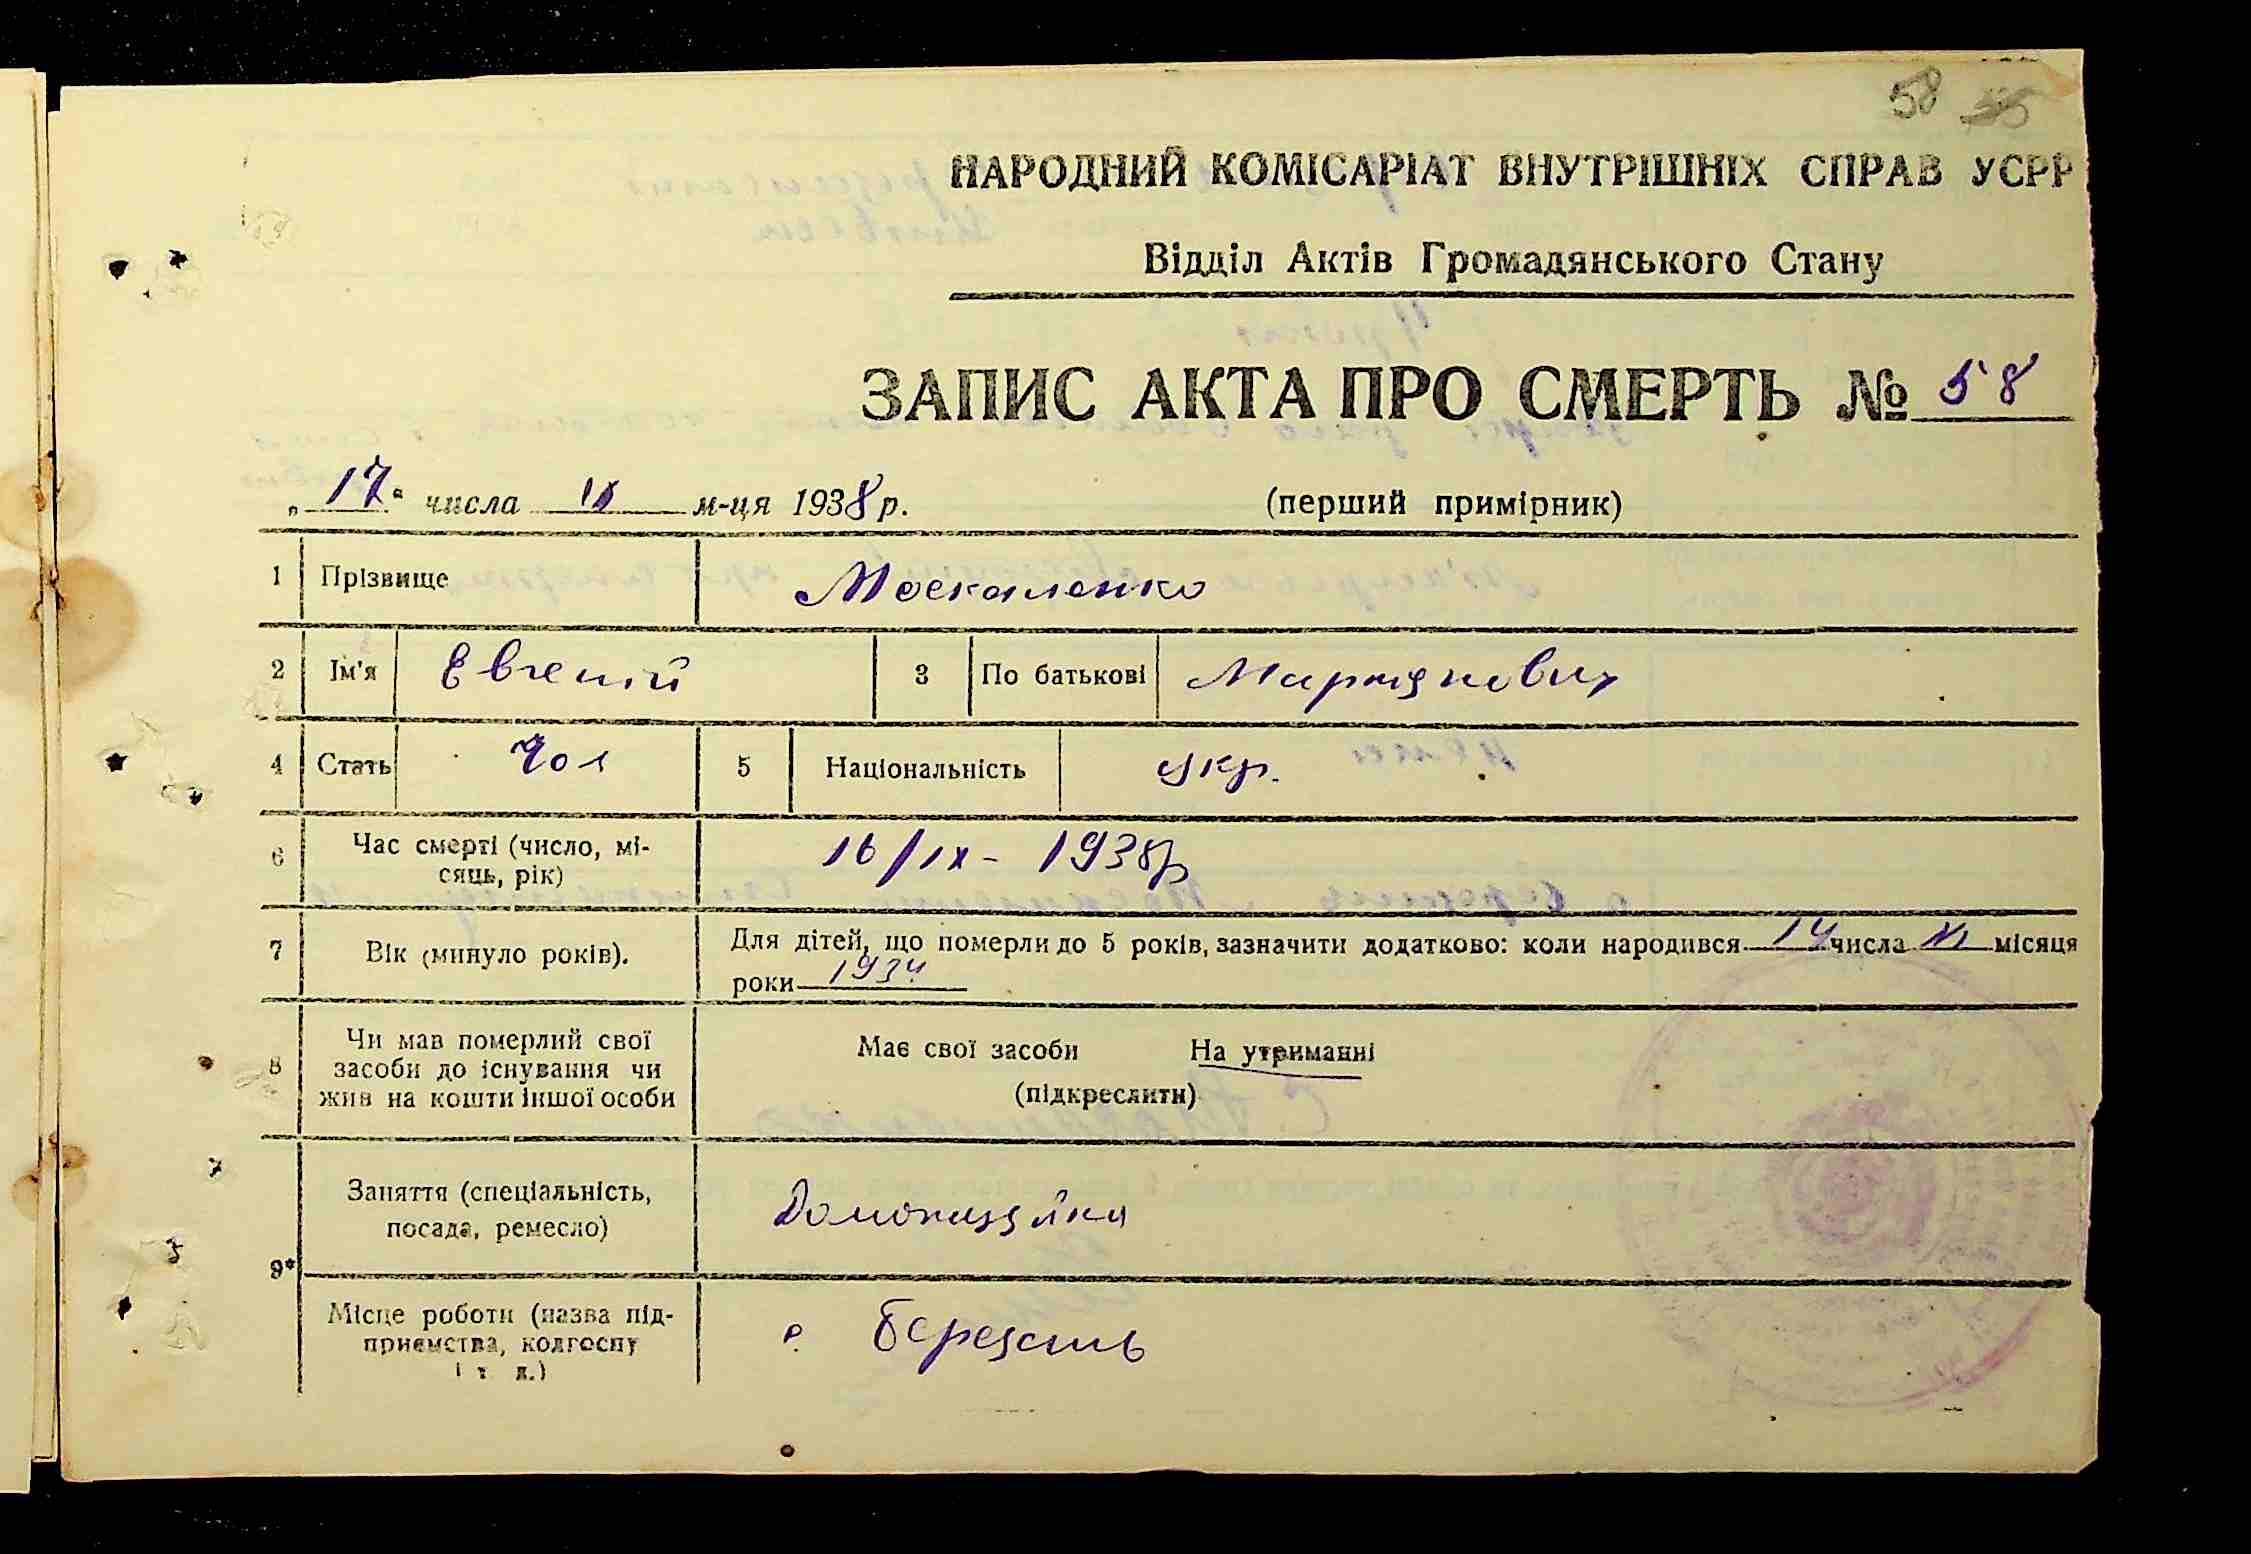 58
НАРОДНИЙ КОМІСАРІАТ ВНУТРІШНІХ СПРАВ УСРР
Відділ Актів Громадянського Стану
ЗАПИС АКТА ПРО СМЕРТЬ № 58
„17“ числа IX м-ця 1938 р. (перший примірник)
1 Прізвище Москаленко
2 Ім'я Евгений 3 По батькові Мартинович
4 Стать Чол 5 Національність Укр.
6 Час смерті (число, мі-
сяць, рік) 16/IX - 1938р
7 Вік (минуло років). Для дітей, що померли до 5 років, зазначити додатково: коли народився 14 числа XI місяця
роки 1934
8 Чи мав померлий свої
засоби до існування чи
жив на кошти іншої особи
Має свої засоби На утриманні
(підкреслити)
9* Заняття (спеціальність,
посада, ремесло)
Місце роботи (назва під-
приємства, колгоспу
і т. д.)
с. Березань